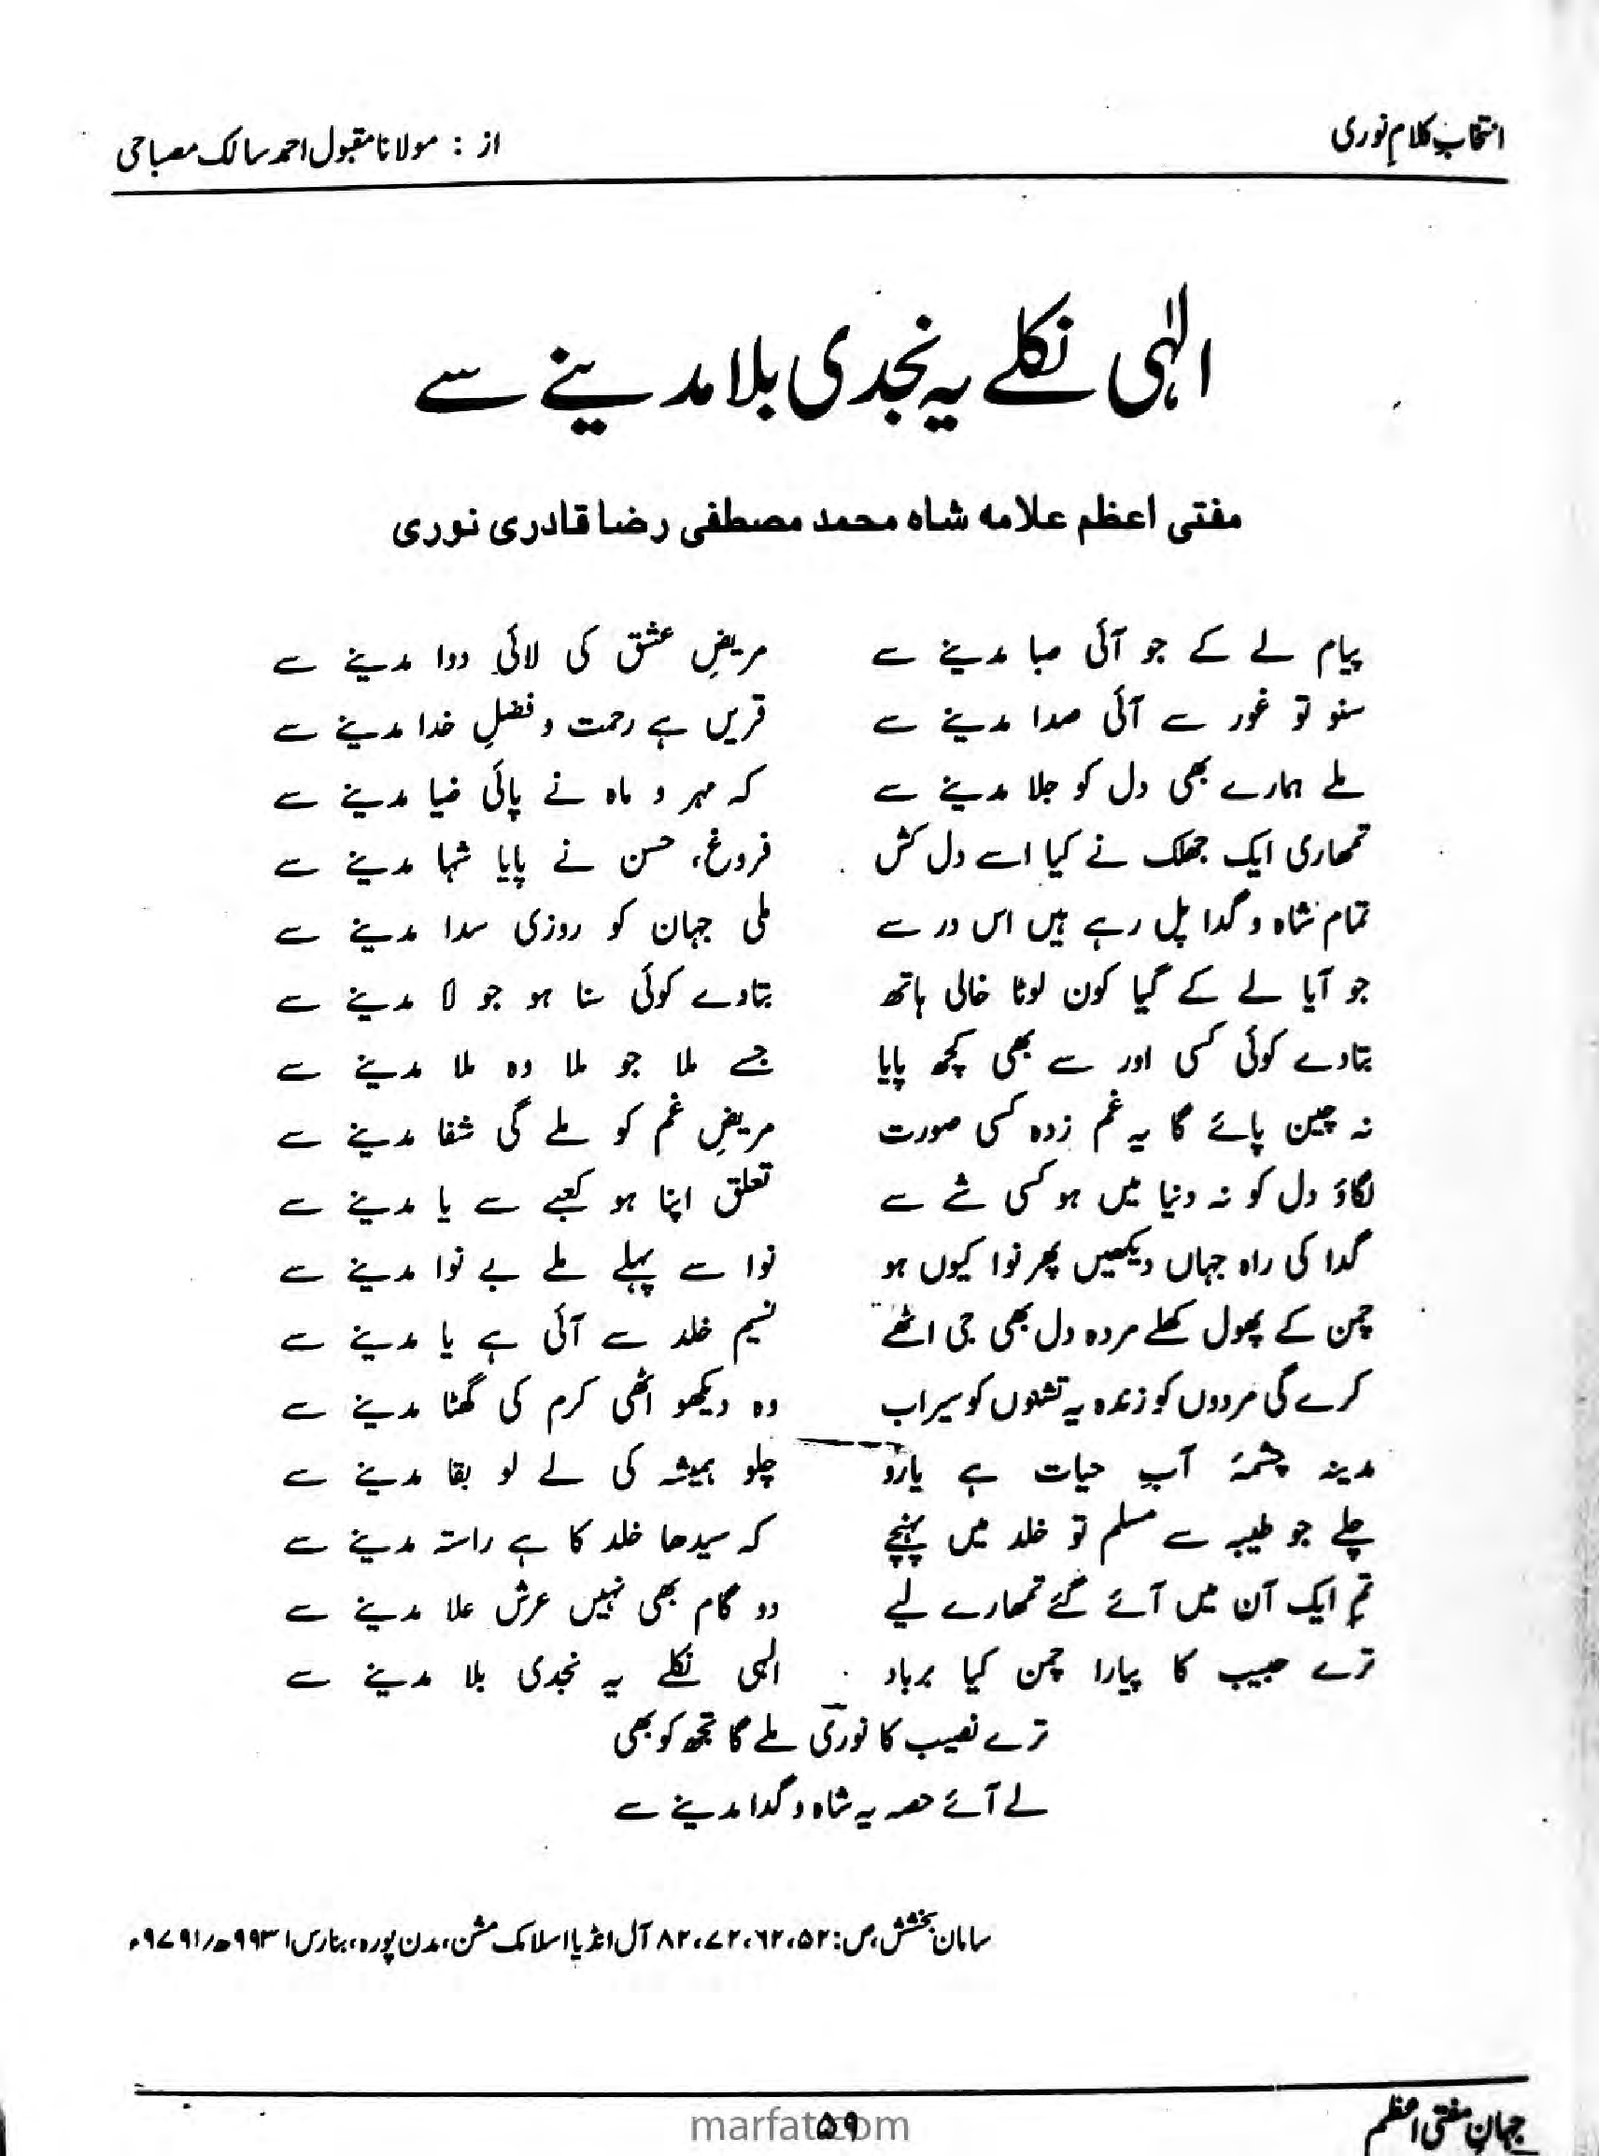 انتخابِ کلامِ نوری
از : مولانا مقبول احمد سالک مصباحی
الٰہی نکلے یہ نجدی بلا مدینے سے
مفتی اعظم علامہ شاہ محمد مصطفی رضا قادری نوری
پیام لے کے جو آئی صبا مدینے سے مریضِ عشق کی لائی دوا مدینے سے
سنو تو غور سے آئی صدا مدینے سے قریں ہے رحمت و فضلِ خدا مدینے سے
ملے ہمارے بھی دل کو جلا مدینے سے کہ مہر و ماہ نے پائی ضیا مدینے سے
تمھاری ایک جھلک نے کیا اسے دل کش فروغ، حسن نے پایا شہا مدینے سے
تمام شاہ و گدا پل رہے ہیں اس در سے ملی جہان کو روزی سدا مدینے سے
جو آیا لے کے گیا کون لوٹا خالی ہاتھ بتادے کوئی سنا ہو جو لا مدینے سے
بتادے کوئی کسی اور سے بھی کچھ پایا جسے ملا جو ملا وہ ملا مدینے سے
نہ چین پائے گا یہ غم زدہ کسی صورت مریضِ غم کو ملے گی شفا مدینے سے
لگاؤ دل کو نہ دنیا میں ہو کسی شے سے تعلق اپنا ہو کعبے سے یا مدینے سے
گدا کی راہ جہاں دیکھیں پھر نوا کیوں ہو نوا سے پہلے ملے بے نوا مدینے سے
چمن کے پھول کھلے مردہ دل بھی جی اٹھے نسیم خلد سے آئی ہے یا مدینے سے
کرے گی مردوں کو زندہ یہ تشنوں کو سیراب وہ دیکھو اٹھی کرم کی گھٹا مدینے سے
مدینہ چشمۂ آبِ حیات ہے یارو چلو ہمیشہ کی لے لو بقا مدینے سے
چلے جو طیبہ سے مسلم تو خلد میں پہنچے کہ سیدھا خلد کا ہے راستہ مدینے سے
تم ایک آن میں آئے گئے تمھارے لیے دو گام بھی نہیں عرش علا مدینے سے
ترے حبیب کا پیارا چمن کیا برباد الٰہی نکلے یہ نجدی بلا مدینے سے
ترے نصیب کا نوری ملے گا تجھ کو بھی
لے آئے حصہ یہ شاہ و گدا مدینے سے
سامان بخشش، ص: ۵۲، ۶۲، ۷۲، ۸۲ آل انڈیا اسلامک مشن، مدن پورہ، بنارس ۹۹۳۱ھ/۹۷۹۱ء
جہانِ مفتی اعظم
۵۹
marfat.com